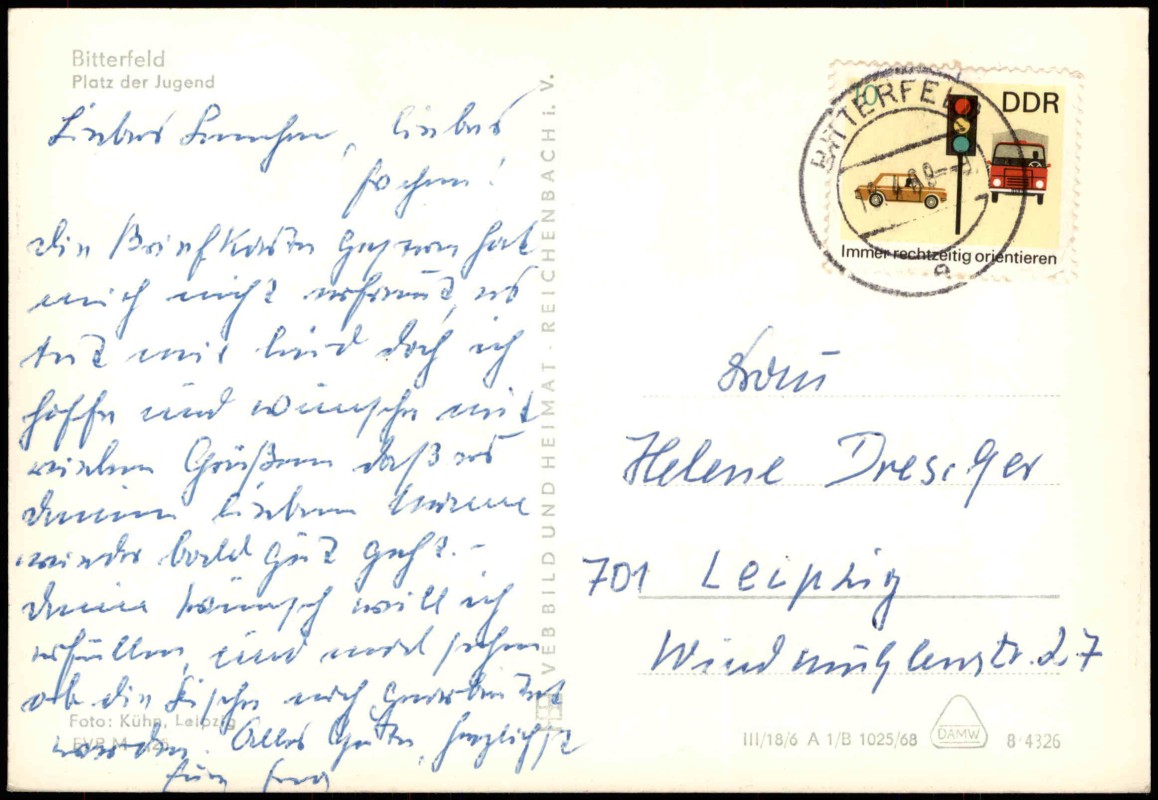 Bitterfeld
Platz der Jugend
Liebes Lenchen, liebes
Jochen!
die Briefkarte gestern hat
mich nicht erfreut, es
tut mir leid doch ich
hoffe und wünsche mit
vielen Grüßen daß es
deinem lieben Manne
wieder bald gut geht. –
deine Wunsch will ich
erfüllen, und mal sehen
ob die Tische noch
werden. Alles Gute, herzlichst
Eure
Foto: Kühn, Leipzig
VEB BILD UND HEIMAT · REICHENBACH i. V.
BITTERFELD
10
DDR
Immer rechtzeitig orientieren
Frau
Helene Drescher
701 Leipzig
Windmühlenstr. 27
III/18/6 A 1/B 1025/68
DAMW
8·4326